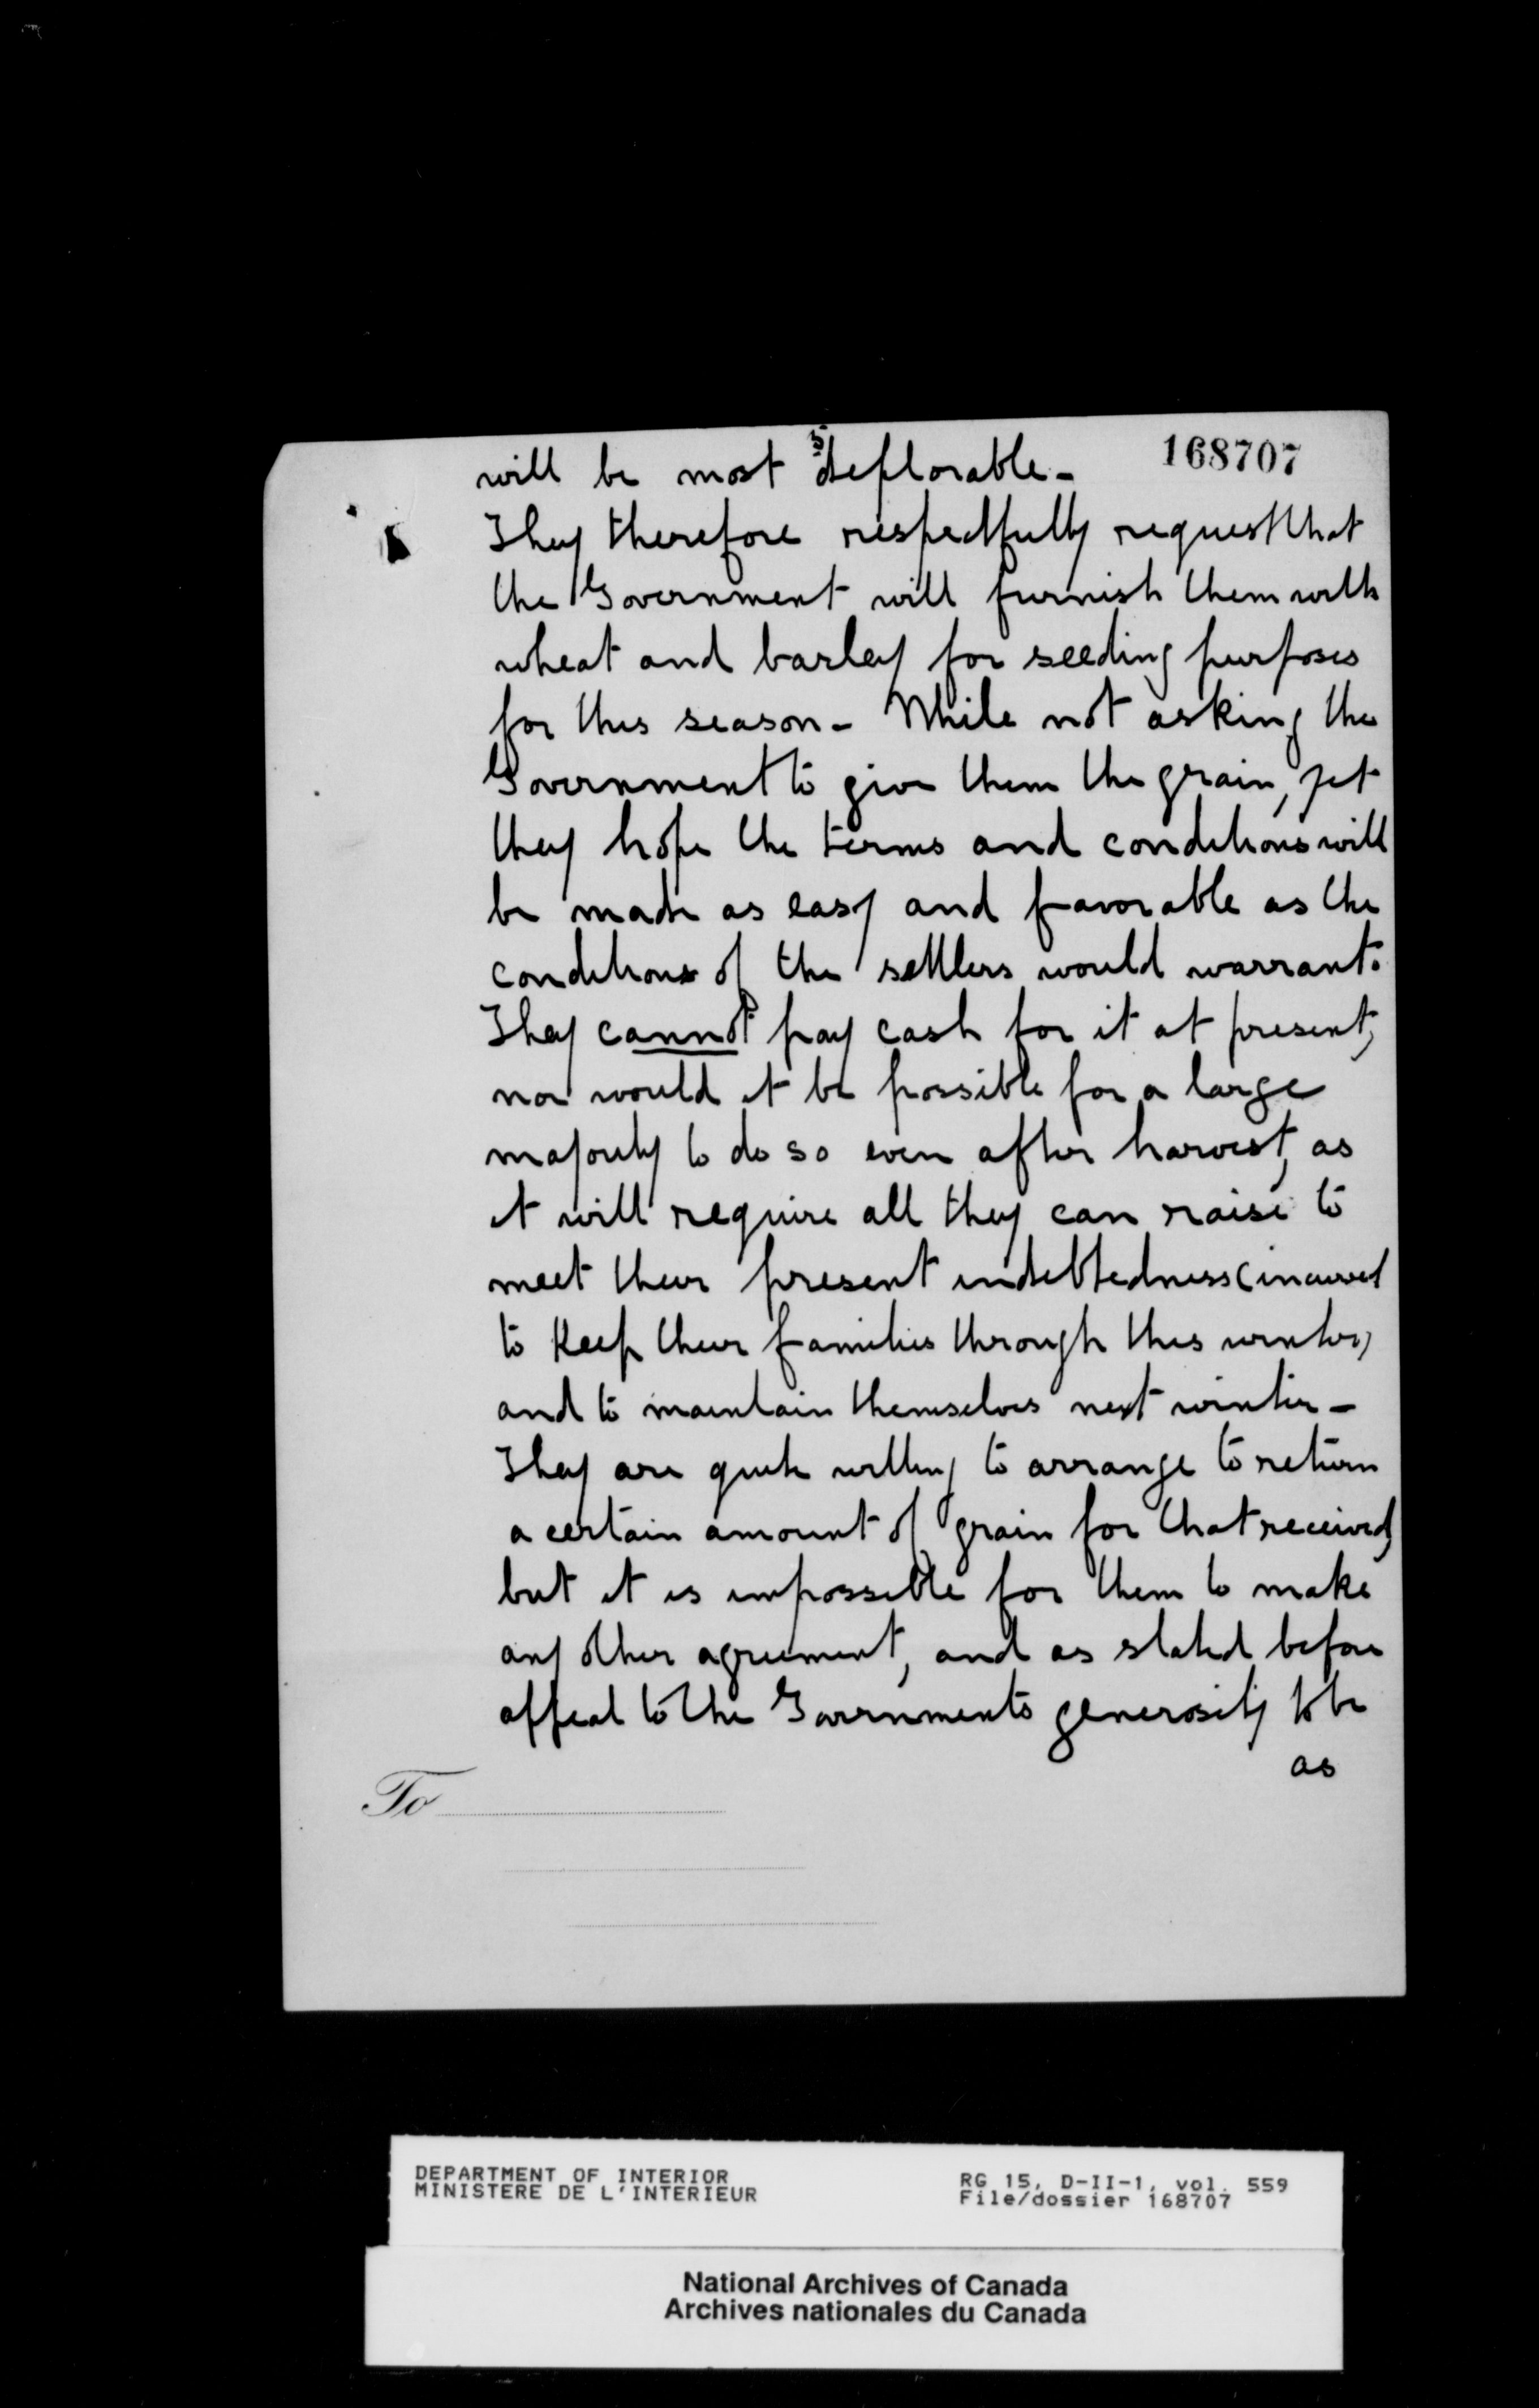 5
168707
will be most deplorable -
They therefore respectfully request that
the Government will furnish them with
wheat and barley for seeding purposes
for this season - While not asking the
Government to give them the grain, yet
they hope the terms and conditions will
be made as easy and favorable as the
conditions of the settlers would warrant.
They cannot pay cash for it at present,
nor would it be possible for a large
majority to do so even after harvest, as
it will require all they can raise to
meet their present indebtedness (incurred
to keep their families through this winter)
and to maintain themselves next winter -
They are quite willing to arrange to return
a certain amount of grain for that received,
but it is impossible for them to make
any other agreement, and as stated before
appeal to the Governments generosity to be
as
To
DEPARTMENT OF INTERIOR
MINISTERE DE L'INTERIEUR
RG 15, D-II-1, vol. 559
File/dossier 168707
National Archives of Canada
Archives nationales du Canada